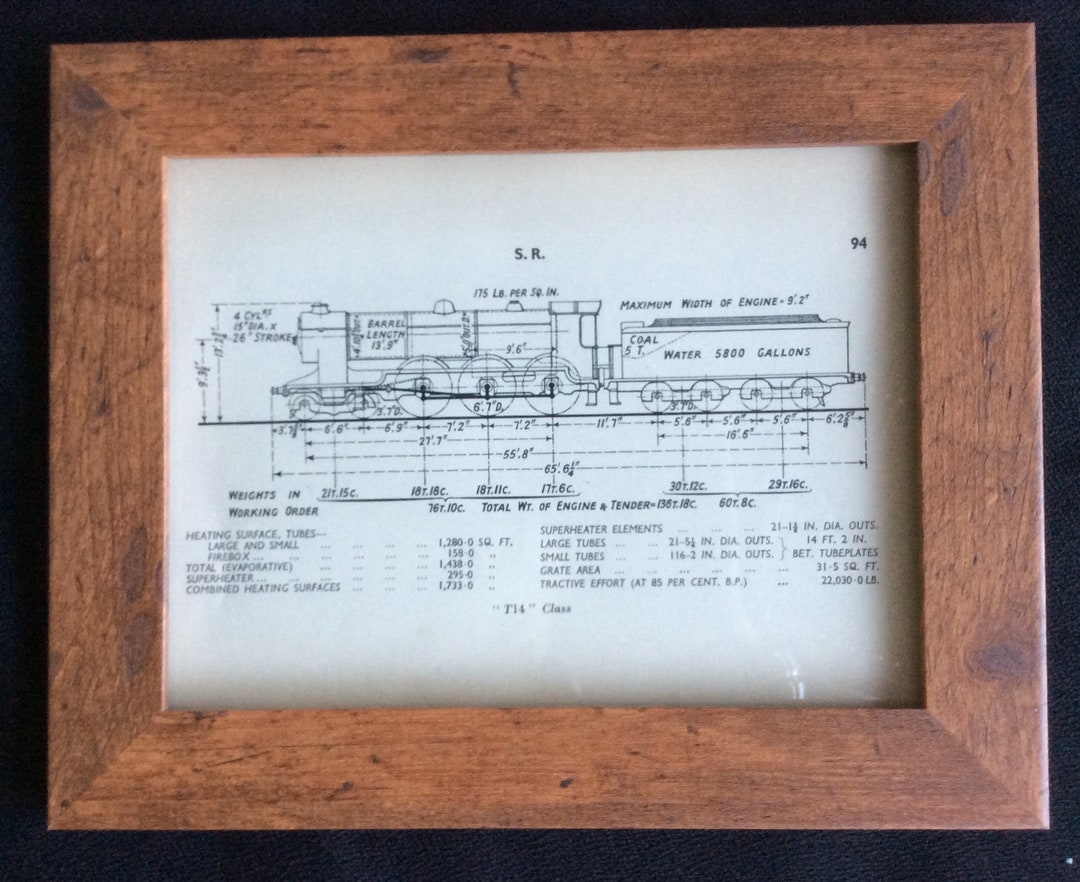 94
S. R.
175 LB. PER SQ. IN.
MAXIMUM WIDTH OF ENGINE = 9'.2"
4 CYLRS
15" DIA. X
26" STROKE
BARREL
LENGTH
13'.9"
9'.6"
COAL
5 T.
WATER 5800 GALLONS
3'.7"D.
6'.7"D.
3'.7"D.
6'.6" 6'.9" 7'.2" 7'.2" 11'.7" 5'.6" 5'.6" 5'.6"
27'.7" 16'.6"
55'.8"
65'.6¼"
WEIGHTS IN WORKING ORDER
21T.15C. 18T.18C. 18T.11C. 17T.6C. 30T.12C. 29T.16C.
76T.10C. TOTAL WT. OF ENGINE & TENDER = 136T.18C. 60T.8C.
HEATING SURFACE, TUBES—
LARGE AND SMALL ... ... ... ... 1,280·0 SQ. FT.
FIREBOX ... ... ... ... ... 158·0 "
TOTAL (EVAPORATIVE) ... ... ... ... 1,438·0 "
SUPERHEATER ... ... ... ... ... 295·0 "
COMBINED HEATING SURFACES ... ... ... 1,733·0 "
SUPERHEATER ELEMENTS ... ... ... 21–1½ IN. DIA. OUTS.
LARGE TUBES ... ... 21–5¼ IN. DIA. OUTS. } 14 FT. 2 IN.
SMALL TUBES ... ... 116–2 IN. DIA. OUTS. } BET. TUBEPLATES
GRATE AREA ... ... ... ... ... 31·5 SQ. FT.
TRACTIVE EFFORT (AT 85 PER CENT. B.P.) ... 22,030·0 LB.
"T14" Class